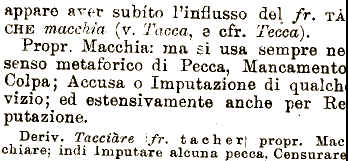 appare aver subíto l'influsso del fr. TÂ
CHE macchia (v. Tacca, e cfr. Tecca).
Propr. Macchia: ma si usa sempre ne
senso metaforico di Pecca, Mancamento
Colpa; Accusa o Imputazione di qualch
vizio; ed estensivamente anche per Re
putazione.
Deriv. Tacciàre (fr. tacher) propr. Mac
chiare; indi Imputare alcuna pecca, Censurare